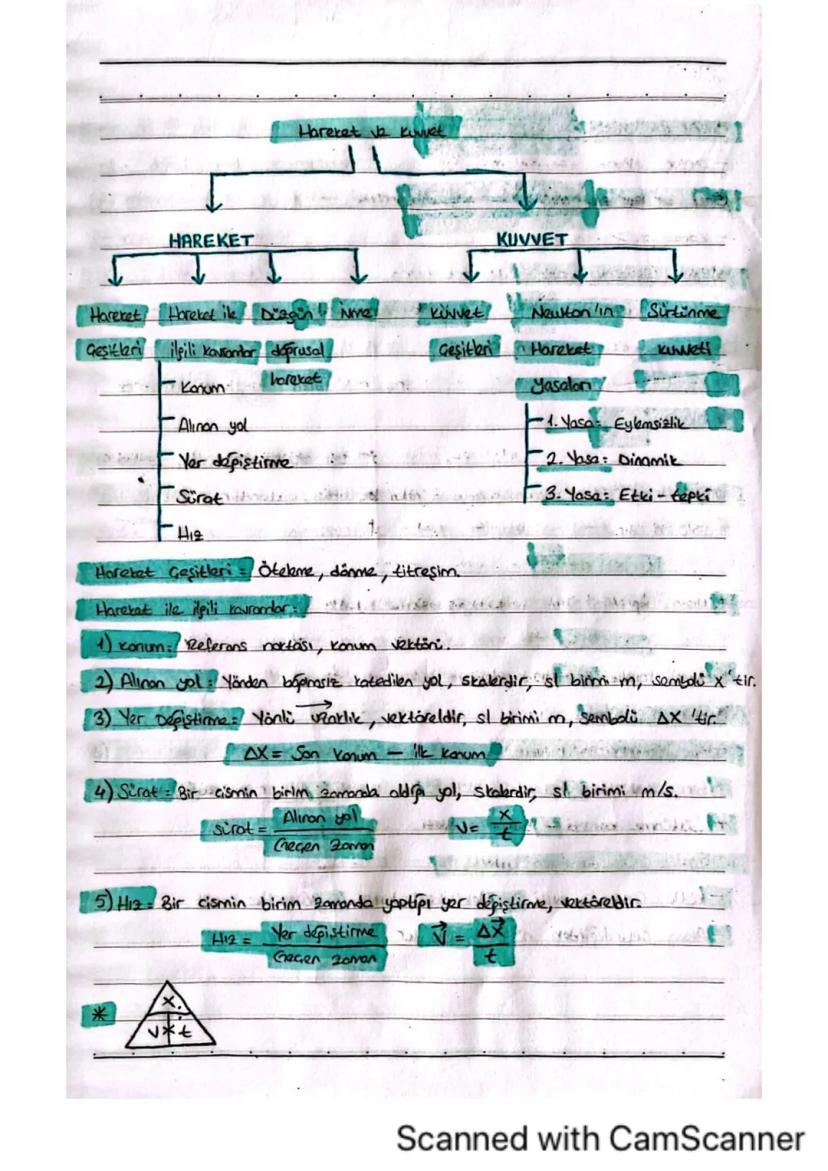 Hareket ve Kuvvet
HAREKET KUVVET
Hareket Hareket ile Düzgün İvme Kuvvet Newton'ın Sürtünme
Çeşitleri ilgili kavramlar doğrusal Çeşitleri Hareket kuvveti
Konum hareket Yasaları
Alınan yol 1. Yasa: Eylemsizlik
Yer değiştirme 2. Yasa: Dinamik
Sürat 3. Yasa: Etki - tepki
Hız
Hareket Çeşitleri = Öteleme, dönme, titreşim.
Hareket ile ilgili kavramlar:
1) Konum: Referans noktası, konum vektörü.
2) Alınan yol: Yönden bağımsız katedilen yol, skalerdir, sI birimi m, sembolü x'tir.
3) Yer Değiştirme: Yönlü uzaklık, vektöreldir, sI birimi m, sembolü ΔX 'tir.
ΔX = Son konum — ilk konum
4) Sürat: Bir cismin birim zamanda aldığı yol, skalerdir, sI birimi m/s.
Sürat = Alınan yol / Geçen zaman V = x / t
5) Hız: Bir cismin birim zamanda yaptığı yer değiştirme, vektöreldir.
Hız = Yer değiştirme / Geçen zaman V⃗ = ΔX⃗ / t
* x
v * t
Scanned with CamScanner